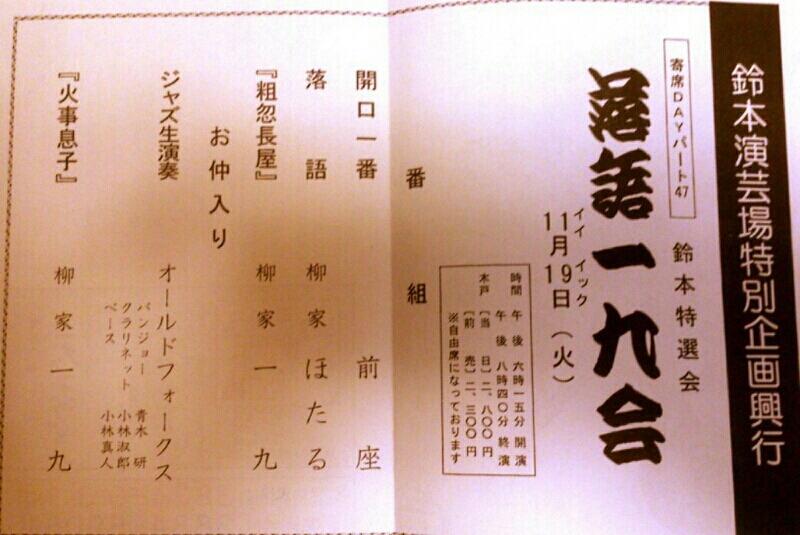 鈴本演芸場特別企画興行
寄席DAYパート47
鈴本特選会
落語一九会
イイ イック
11月19日(火)
時間 午後 六時一五分 開演
午後 八時四〇分 終演
木戸 〔当 日〕二、八〇〇円
〔前 売〕二、三〇〇円
※自由席になっております
番組
開口一番 前座
落語 柳家ほたる
『粗忽長屋』 柳家一九
お仲入り
ジャズ生演奏 オールドフォークス
バンジョー 青木 研
クラリネット 小林淑郎
ベース 小林真人
『火事息子』 柳家一九